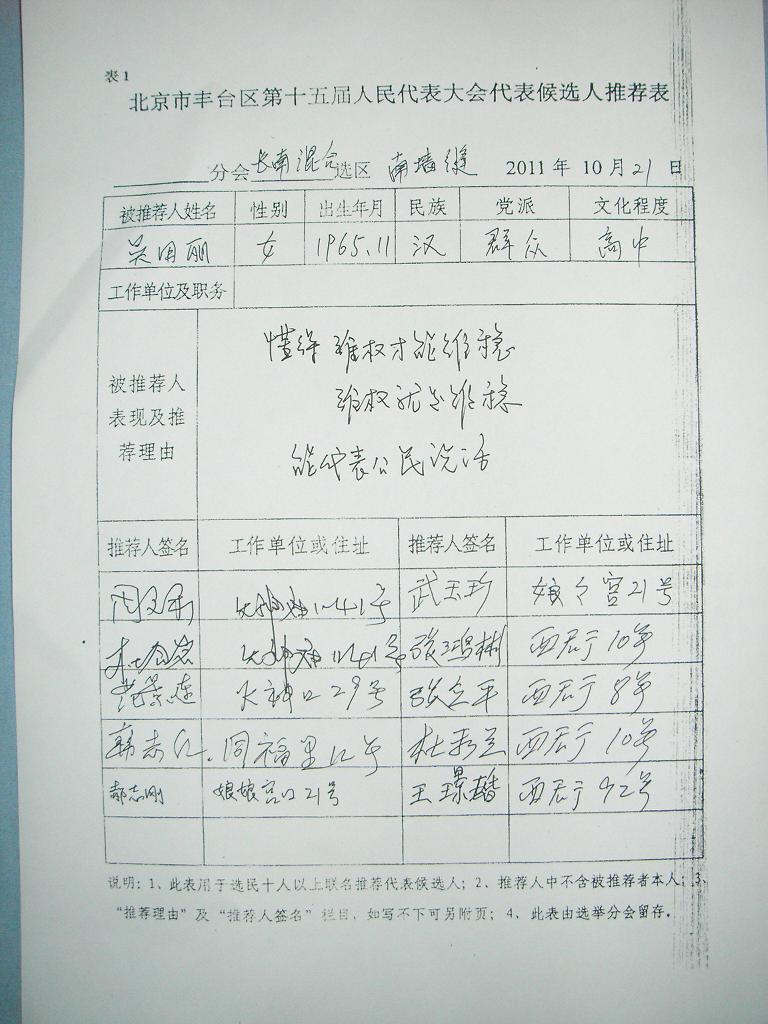 表1
北京市丰台区第十五届人民代表大会代表候选人推荐表
分会 长南混合 选区 南墙缝 2011 年 10 月 21 日
被推荐人姓名 性别 出生年月 民族 党派 文化程度
吴田丽 女 1965.11 汉 群众 高中
工作单位及职务
懂得维权才能维稳
维权就是维稳
被推荐人
表现及推
荐理由
能代表公民说话
推荐人签名 工作单位或住址 推荐人签名 工作单位或住址
武玉珍 娘々宫21号
张鸿彬 西后于10号
火神口29号 张立平 西后于8号
同福里12号 西后于10号
郝志刚 娘娘宫口21号 王璟 西后于42号
说明：1、此表用于选民十人以上联名推荐代表候选人；2、推荐人中不含被推荐者本人；3、
“推荐理由”及“推荐人签名”栏目，如写不下可另附页；4、此表由选举分会留存。